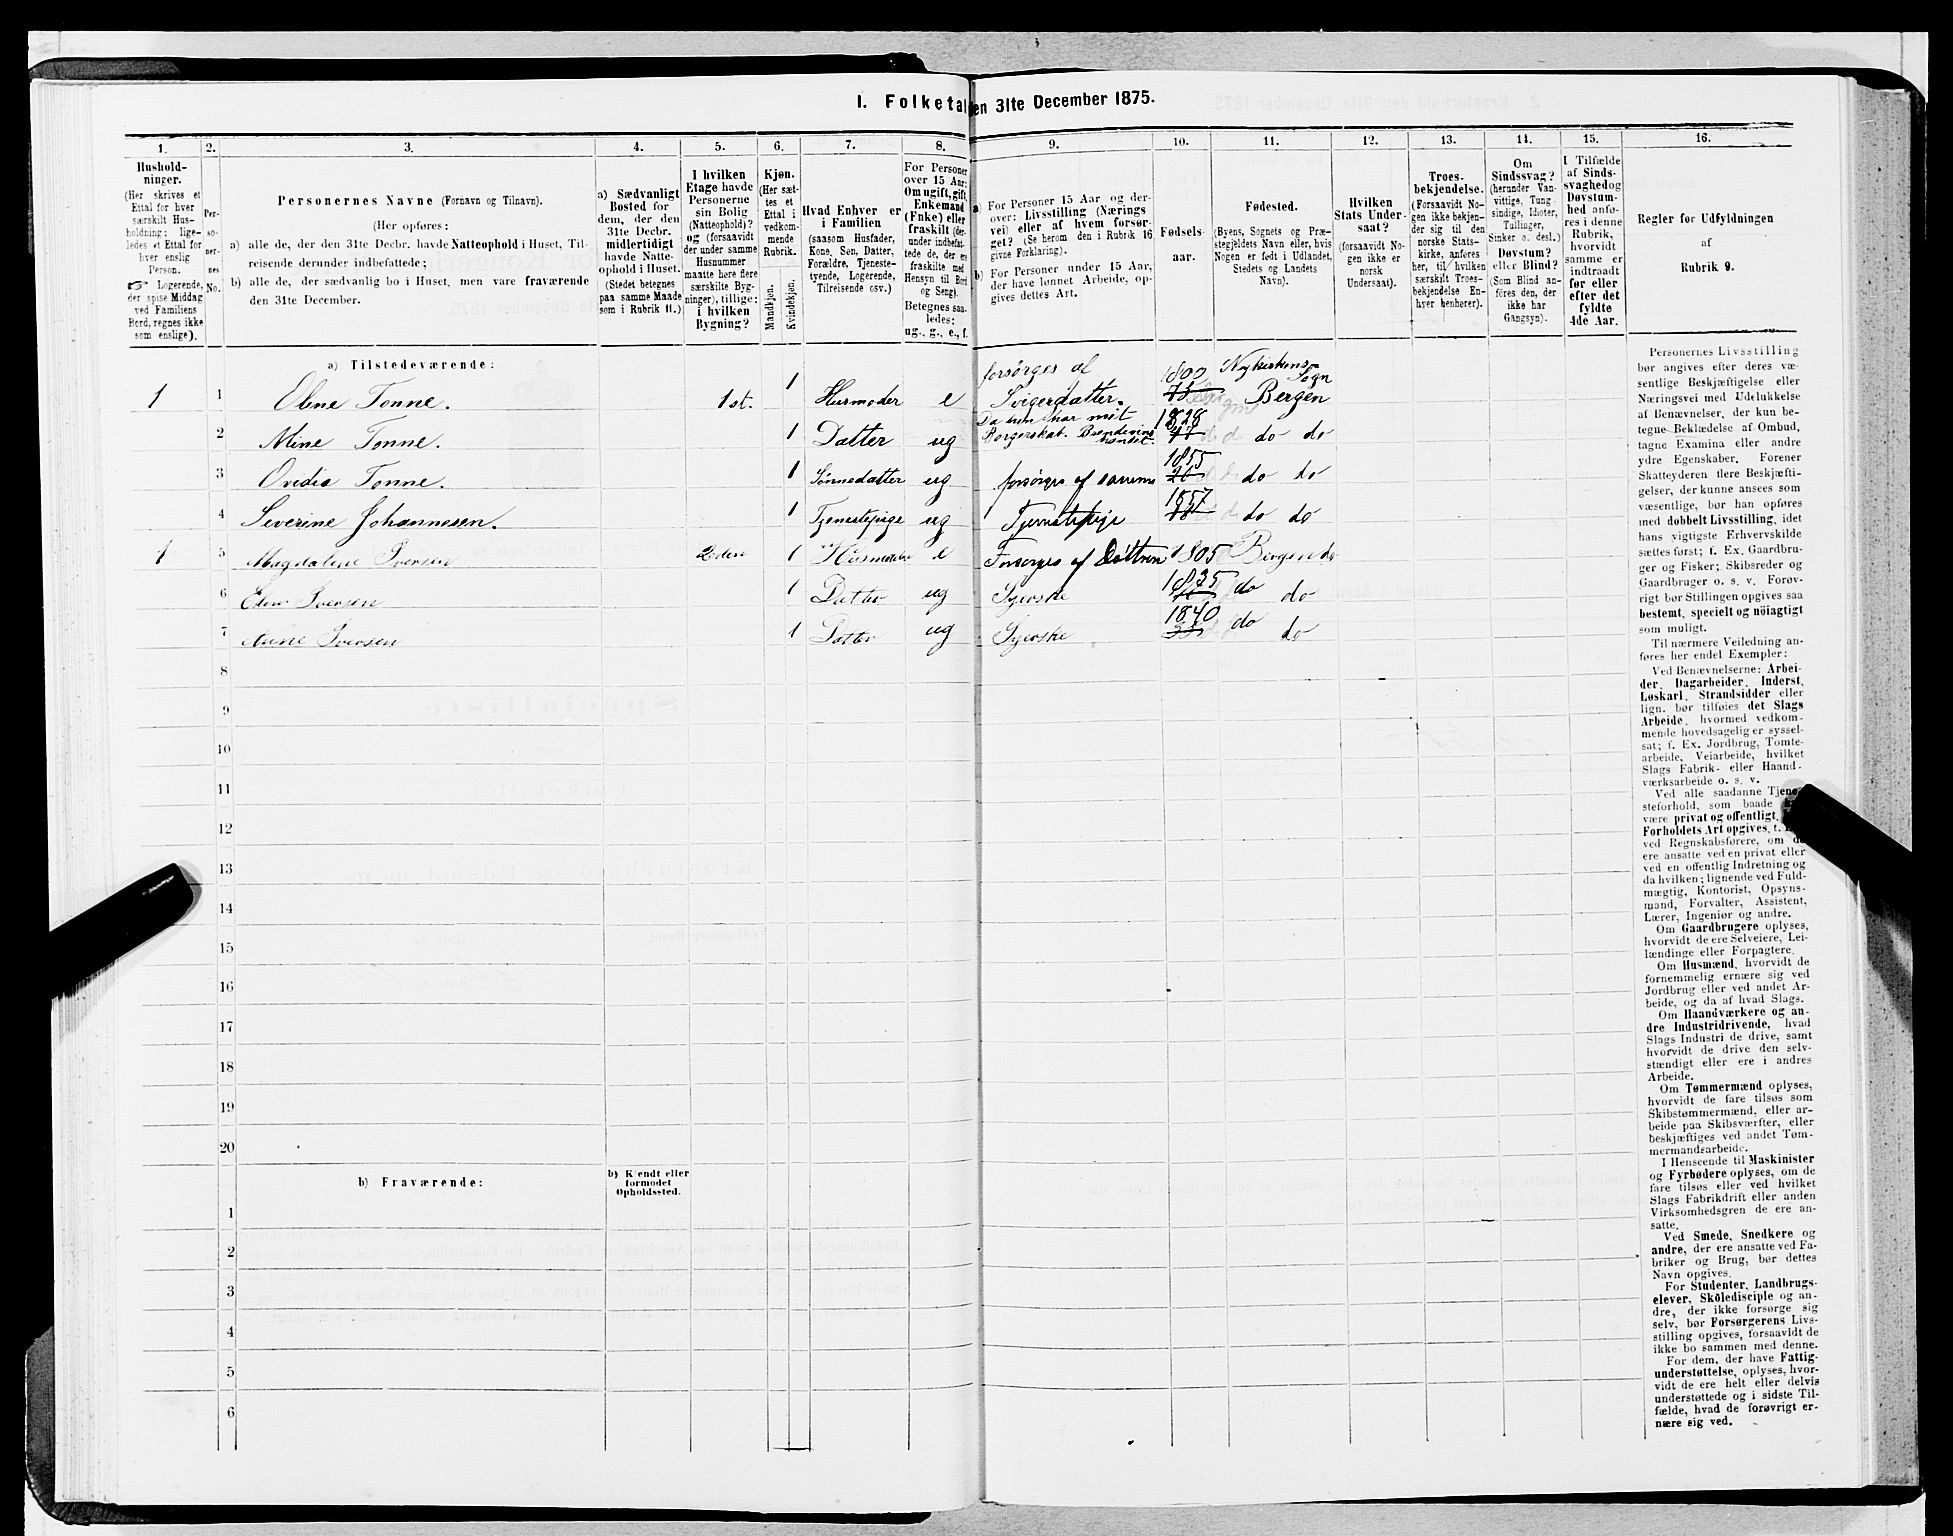 I. Folketal den 31te December 1875.
1. 2. 3. 4. 5. 6. 7. 8. 9. 10. 11. 12. 13. 14. 15. 16.
Hushold-
ninger.
(Her skrives et
Ettal for hver
særskilt Hus-
holdning; lige-
ledes et Ettal for
hver enslig
Person.
☞ Logerende,
der spise Middag
ved Familiens
Bord, regnes ikke
som enslige).
Per-
so-
ner-
nes
No.
Personernes Navne (Fornavn og Tilnavn).
(Her opføres:
a) alle de, der den 31te Decbr. havde Natteophold i Huset, Til-
reisende derunder indbefattede;
b) alle de, der sædvanlig bo i Huset, men vare fraværende
den 31te December.
a) Sædvanligt
Bosted for
dem, der den
31te Decbr.
midlertidigt
havde Natte-
ophold i Huset.
(Stedet betegnes
paa samme Maade
som i Rubrik 11.)
I hvilken
Etage havde
Personerne
sin Bolig
(Natteophold)?
og (forsaavidt
der under samme
Husnummer
maatte høre flere
særskilte Byg-
ninger), tillige:
i hvilken
Bygning?
Kjøn.
(Her sæt-
tes et
Ettal i
vedkom-
mende
Rubrik.
Mandkjøn.
Kvindekjøn.
Hvad Enhver er
i Familien
(saasom Husfader,
Kone, Søn, Datter,
Forældre, Tjeneste-
tyende, Logerende,
Tilreisende osv.)
For Personer
over 15 Aar:
Om ugift, gift,
Enkemand
(Enke) eller
fraskilt (der-
under indbefat-
tede de, der ere
fraskilte med
Hensyn til Bord
og Seng).
Betegnes saa-
ledes:
ug., g., e., f.
a) For Personer 15 Aar og der-
over: Livsstilling (Nærings
vei) eller af hvem forsør-
get? (Se herom den i Rubrik 16
givne Forklaring).
b) For Personer under 15 Aar,
der have lønnet Arbeide, op-
gives dettes Art.
Fødsels-
aar.
Fødested.
(Byens, Sognets og Præ-
stegjeldets Navn eller, hvis
Nogen er født i Udlandet,
Stedets og Landets
Navn).
Hvilken
Stats Under-
saat?
(forsaavidt No-
gen ikke er
norsk
Undersaat).
Troes-
bekjendelse.
(Forsaavidt No-
gen ikke bekjen-
der sig til den
norske Stats-
kirke, anføres
her, til hvilken
særskilt Troes-
bekjendelse En-
hver henhører).
Om
Sindssvag?
(herunder Van-
vittige, Tung-
sindige, Idioter,
Tullinger,
Sinker o. desl.)
Døvstum?
eller Blind?
(Som Blind an-
føres den, der
ikke har
Gangsyn).
I Tilfælde
af Sinds-
svaghed og
Døvstum-
hed anfø-
res i denne
Rubrik,
hvorvidt
samme er
indtraadt
før eller
efter det
fyldte
4de Aar.
Regler for Udfyldningen
af
Rubrik 9.
a) Tilstedeværende:
1 1 Oline Tonne. 1 st. 1 Husmoder e forsørges af Svigerdatter. 1800 75 Nykirkens-Sogn Bergen
2 Mine Tonne. 1 Datter ug Da hun har mit Borgerskab. Brændevins handel. 1828 47 do do
3 Ovidia Tonne. 1 Sønnedatter ug forsørges af samme 1855 20 do do
4 Severine Johannesen. 1 Tjenestepige ug Tjenestepige 1857 18 do do
1 5 Magdalene Iversen 2den 1 Husmoder e Forsørges af Døttren 1805 Bergen do
6 Iversen 1 Datter ug Syerske 1835 do do
7 Anne Iversen 1 Datter ug Syerske 1840 35 do do
8
9
10
11
12
13
14
15
16
17
18
19
20
b) Fraværende:
b) Kjendt eller
formodet
Opholdssted.
1
2
3
4
5
6
Personernes Livsstilling
bør angives efter deres væ-
sentlige Beskjæftigelse eller
Næringsvei med Udelukkelse
af Benævnelser, der kun be-
tegne Beklædelse af Ombud,
tagne Examina eller andre
ydre Egenskaber. Forener
Skatteyderen flere Beskjæfti-
gelser, der kunne ansees som
væsentlige, bør han opføres
med dobbelt Livsstilling, idet
hans vigtigste Erhvervskilde
sættes først; f. Ex. Gaardbru-
ger og Fisker; Skibsreder og
Gaardbruger o. s. v. Forøv-
rigt bør Stillingen opgives saa
bestemt, specielt og nöiagtigt
som muligt.
Til nærmere Veiledning an-
føres her endel Exempler:
Ved Benævnelserne: Arbei-
der, Dagarbeider, Inderst,
Løskarl, Strandsidder eller
lign. bør tilføies det Slags
Arbeide, hvormed vedkom-
mende hovedsagelig er syssel-
sat; f. Ex. Jordbrug, Tomte-
arbeide, Veiarbeide, hvilket
Slags Fabrik- eller Haand-
værksarbeide o. s. v.
Ved alle saadanne Tjene-
steforhold, som baade
være privat og offentligt,
Forholdets Art opgives, t.
ved Regnskabsførere, om de
ere ansatte ved en privat eller
ved en offentlig Indretning og
da hvilken; lignende ved Fuld-
mægtig, Kontorist, Opsyns-
mand, Forvalter, Assistent,
Lærer, Ingeniør og andre.
Om Gaardbrugere oplyses,
hvorvidt de ere Selveiere, Lei-
lændinge eller Forpagtere.
Om Husmænd, hvorvidt de
fornemmelig ernære sig ved
Jordbrug eller ved andet Ar-
beide, og da af hvad Slags.
Om Haandværkere og an-
dre Industridrivende, hvad
Slags Industri de drive, samt
hvorvidt de drive den selv-
stændigt eller ere i andres
Arbeide.
Om Tømmermænd oplyses,
hvorvidt de fare tilsøs som
Skibstømmermænd, eller ar-
beide paa Skibsværfter, eller
beskjæftiges ved andet Tøm-
mermandsarbeide.
I Henseende til Maskinister
og Fyrbødere oplyses, om de
fare tilsøs eller ved hvilket
Slags Fabrikdrift eller anden
Virksomhedsgren de ere an-
satte.
Ved Smede, Snedkere og
andre, der ere ansatte ved Fa-
briker og Brug, bør dettes
Navn opgives.
For Studenter, Landbrugs-
elever, Skoledisciple og an-
dre, der ikke forsørge sig
selv, bør Forsørgerens Livs-
stilling opgives, forsaavidt de
ikke bo sammen med denne.
For dem, der have Fattig-
understøttelse, oplyses, hvor-
vidt de ere helt eller delvis
understøttede og i sidste Til-
fælde, hvad de forøvrigt er-
nære sig ved.